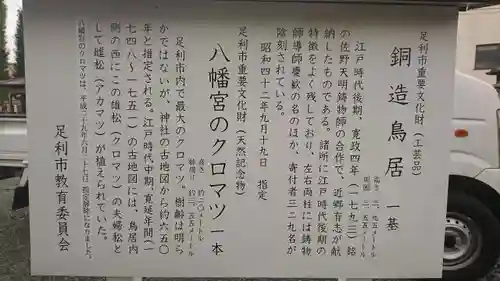 足利市重要文化財（工芸品）
銅造鳥居　一基
江戸時代後期、寛政四年（一七九二）銘
の佐野天明鋳物師の合作で、近郷有志が献
納したものである。諸所に江戸時代後期の
特徴をよく残しており、左右両柱には鋳物
師導師慶歓の名のほか、寄付者三二九名が
陰刻されている。
昭和四十二年九月十九日　指定
足利市重要文化財（天然記念物）
八幡宮のクロマツ　一本
高さ　約二〇メートル
足利市内で最大のクロマツ。樹齢は明ら
かではないが、神社の古地図から約六五〇
年と推定される。江戸時代中期、寛延年間（一
七四八～一七五一）の古地図には、鳥居内
側の西にこの雄松（クロマツ）の夫婦松と
して雌松（アカマツ）が植えられていた。
八幡宮のクロマツは、平成二十九年六月二十七日 指定解除になりました。
足利市教育委員会